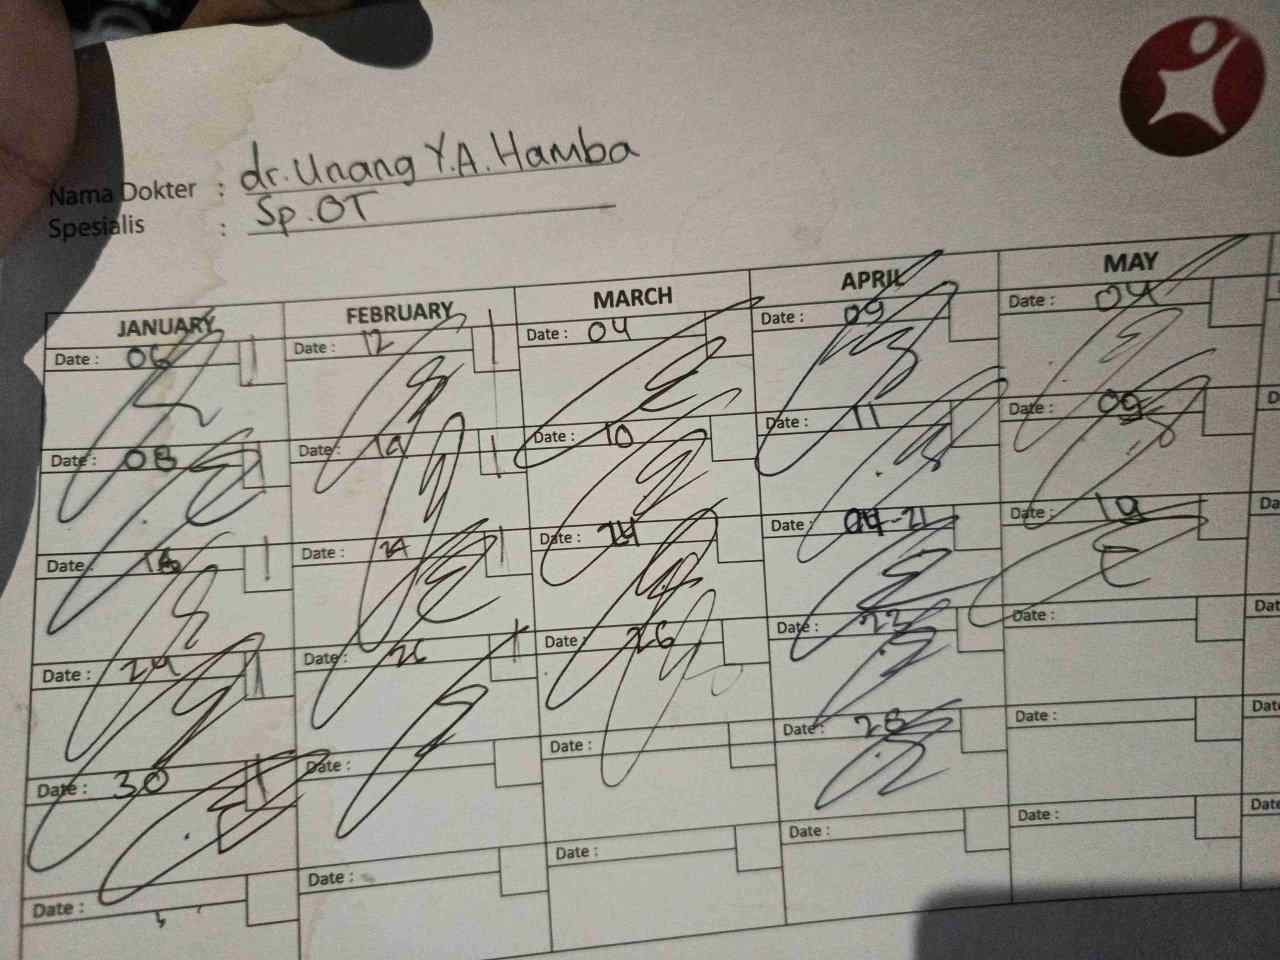 Nama Dokter : dr. Unang Y.A. Hamba
Spesialis : Sp.OT
JANUARY FEBRUARY MARCH APRIL MAY
Date : 06 Date : 12 Date : 04 Date : 09 Date : 04
Date : 08 Date : 19 Date : 10 Date : 11 Date : 09 D
Date : 16 Date : 24 Date : 24 Date : Date : 19 Da
Date : 24 Date : 26 Date : 26 Date : 23 Date : Dat
Date : 30 Date : Date : Date : 28 Date : Date
Date : Date : Date : Date : Date : Date